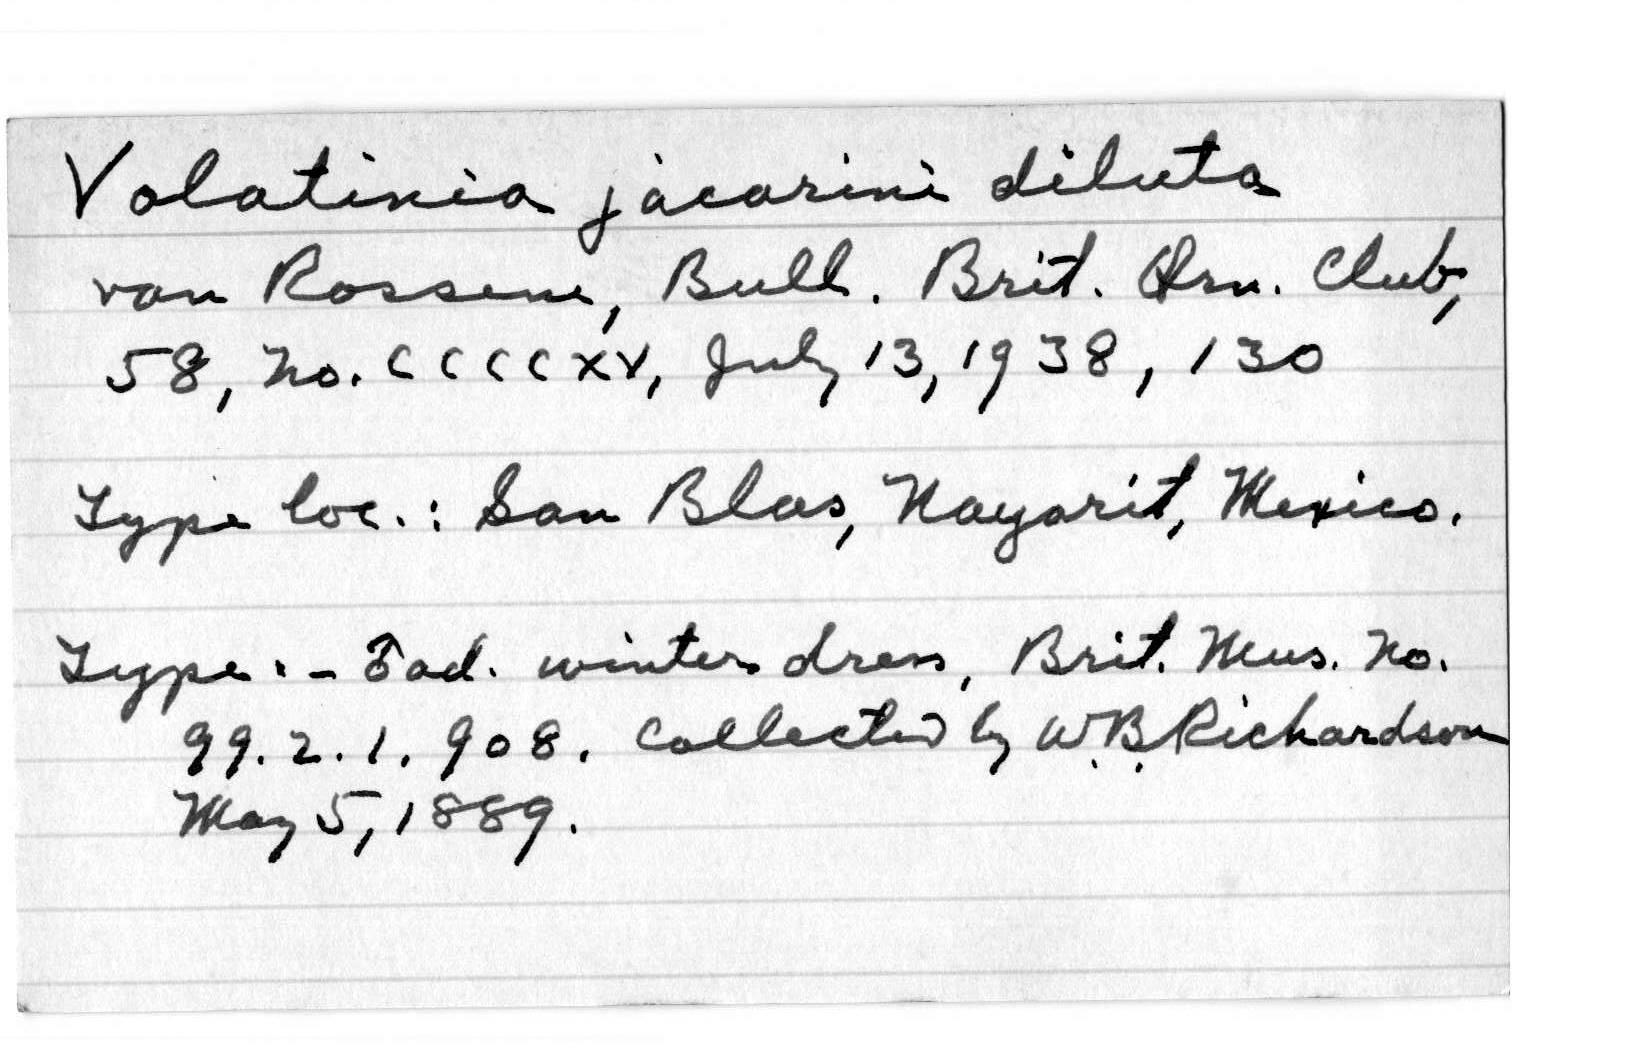 Volatinia jacarini diluta
van Rossem, Bull. Brit. Orn. Club,
58, no. CCCCXV, July 13, 1938, 130
Type loc.: San Blas, Nayarit, Mexico.
Type:- ♂ ad. winter dress, Brit. Mus. no.
99.2.1.908. Collected by W.B. Richardson
May 5, 1889.